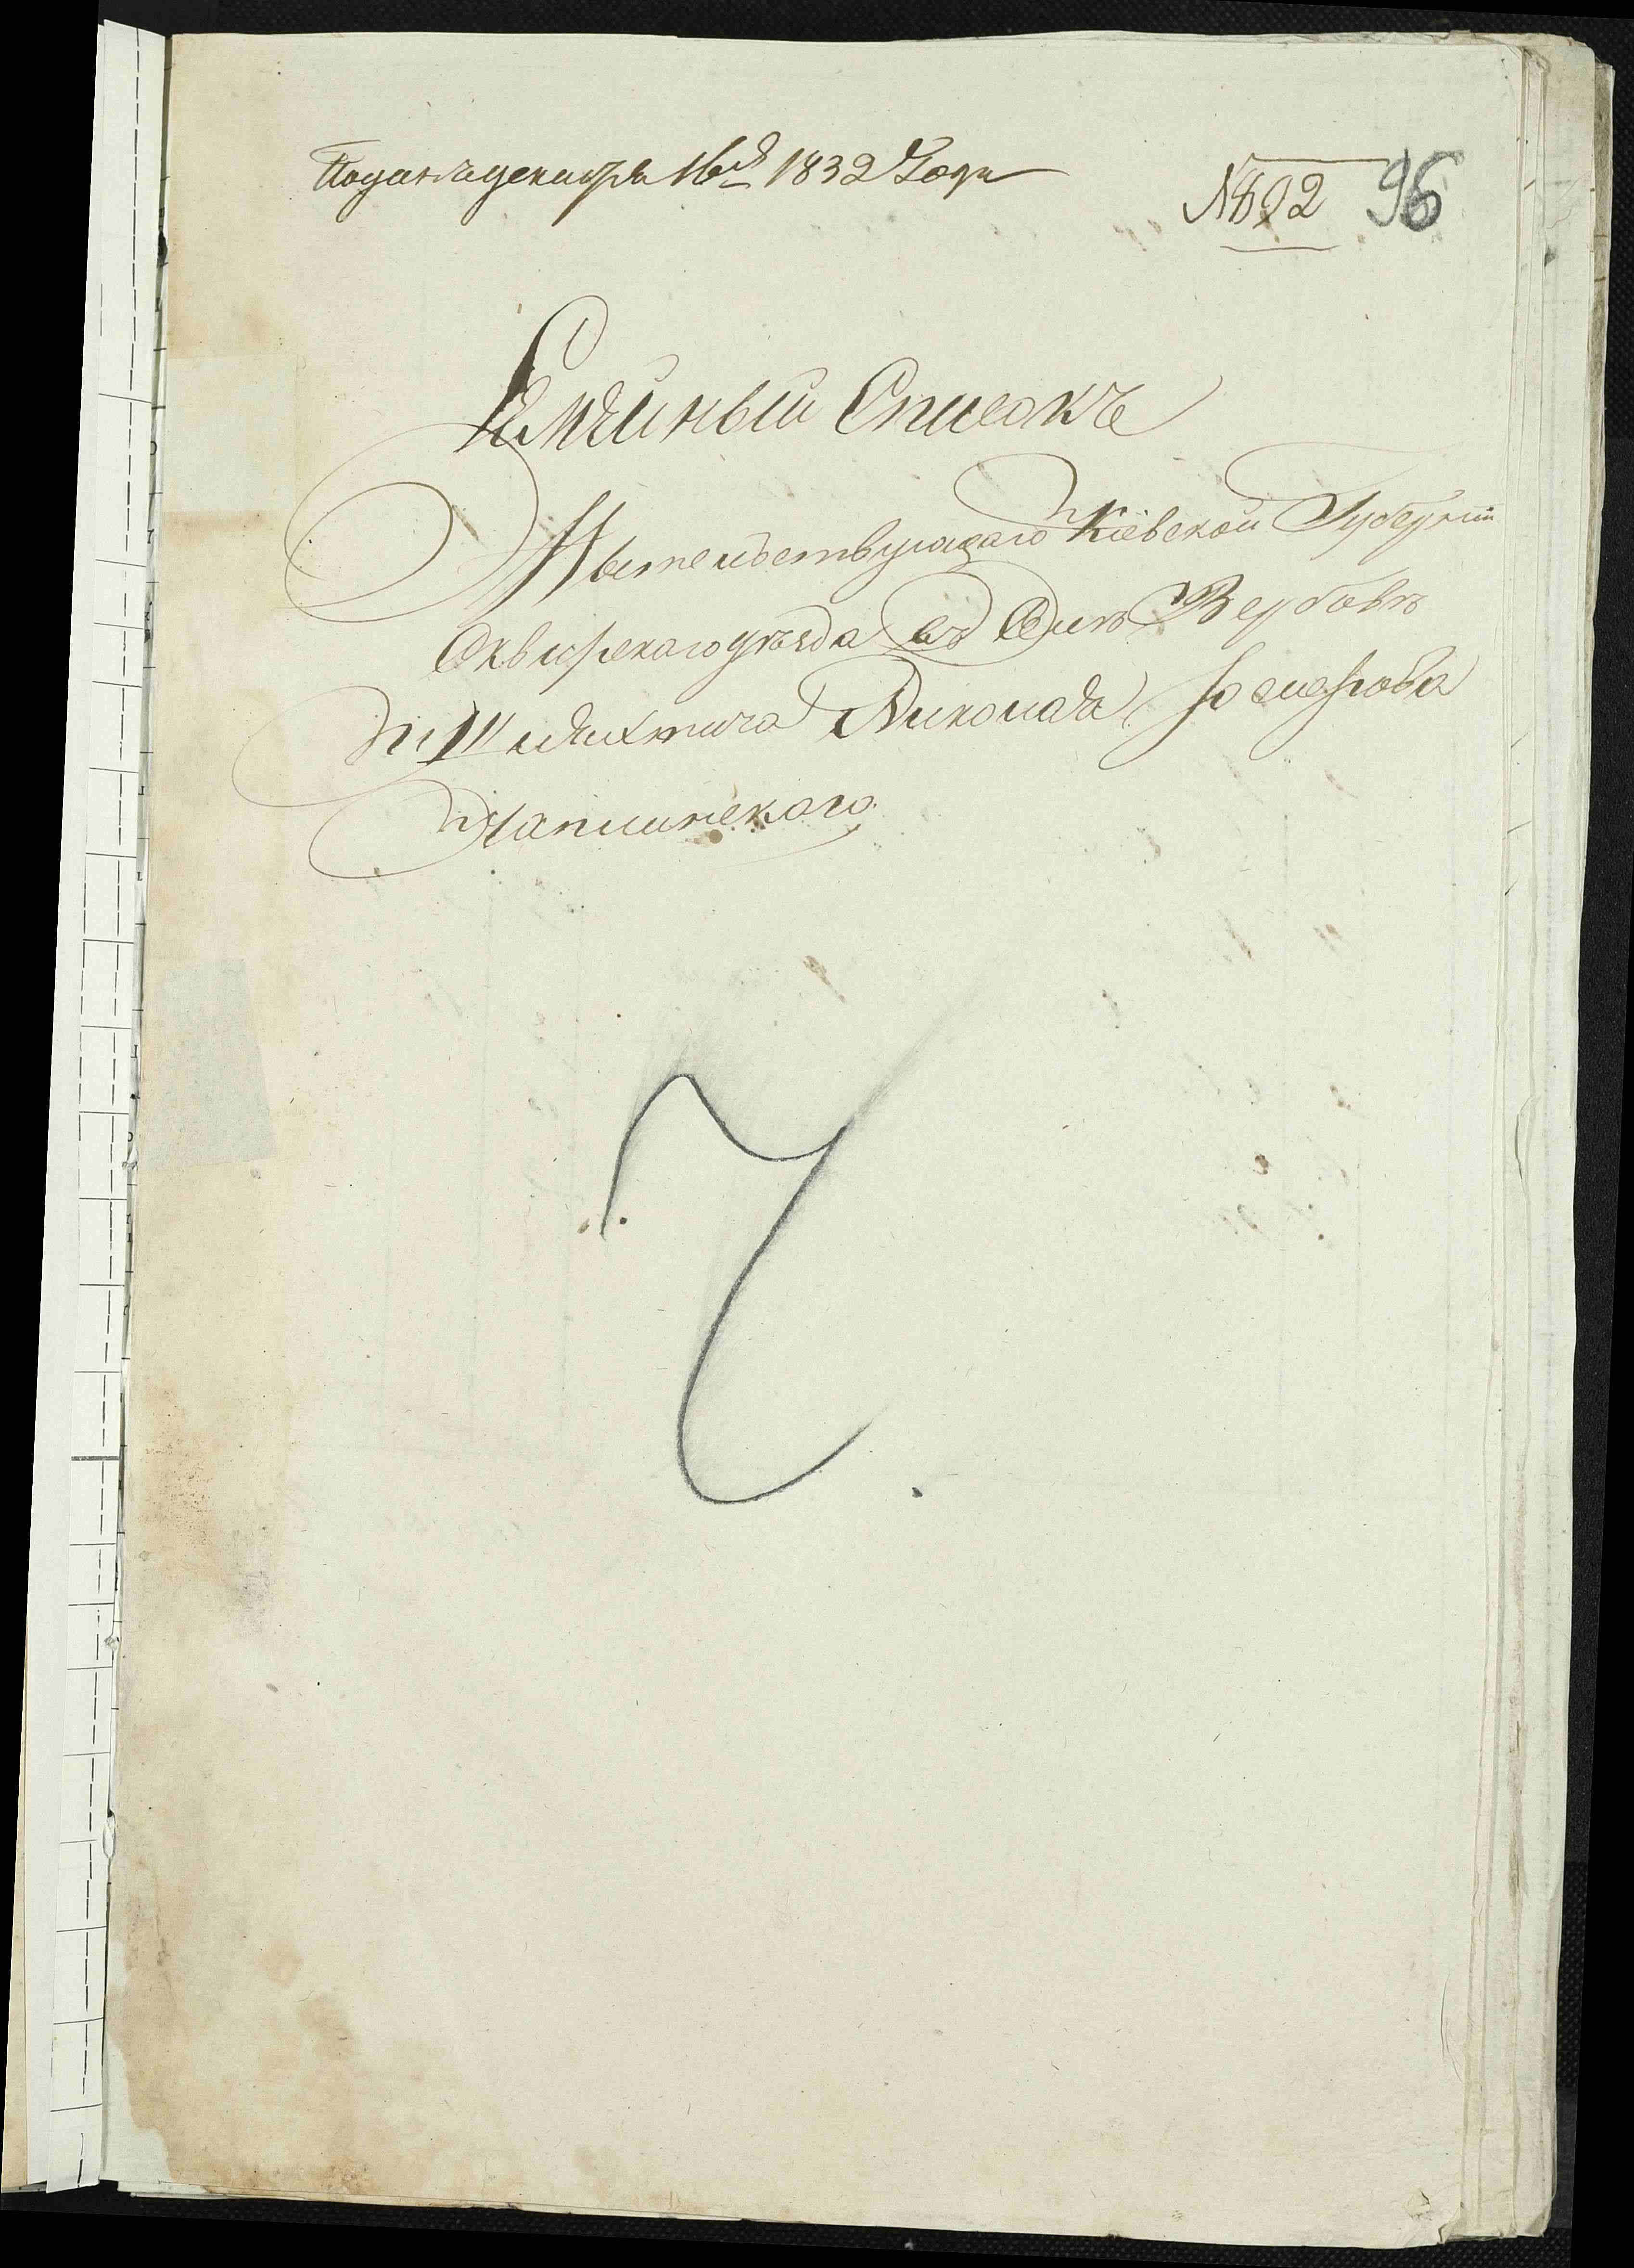 Поданъ декабря 16го 1832 Года
№802 96
Семейный Списокъ
Жытельствующаго Кіевской Губерніи
Сквирскаго уѣзда въ Селѣ Вербовѣ
Шляхтича Николая Юзефова
Чаплинского
Ч